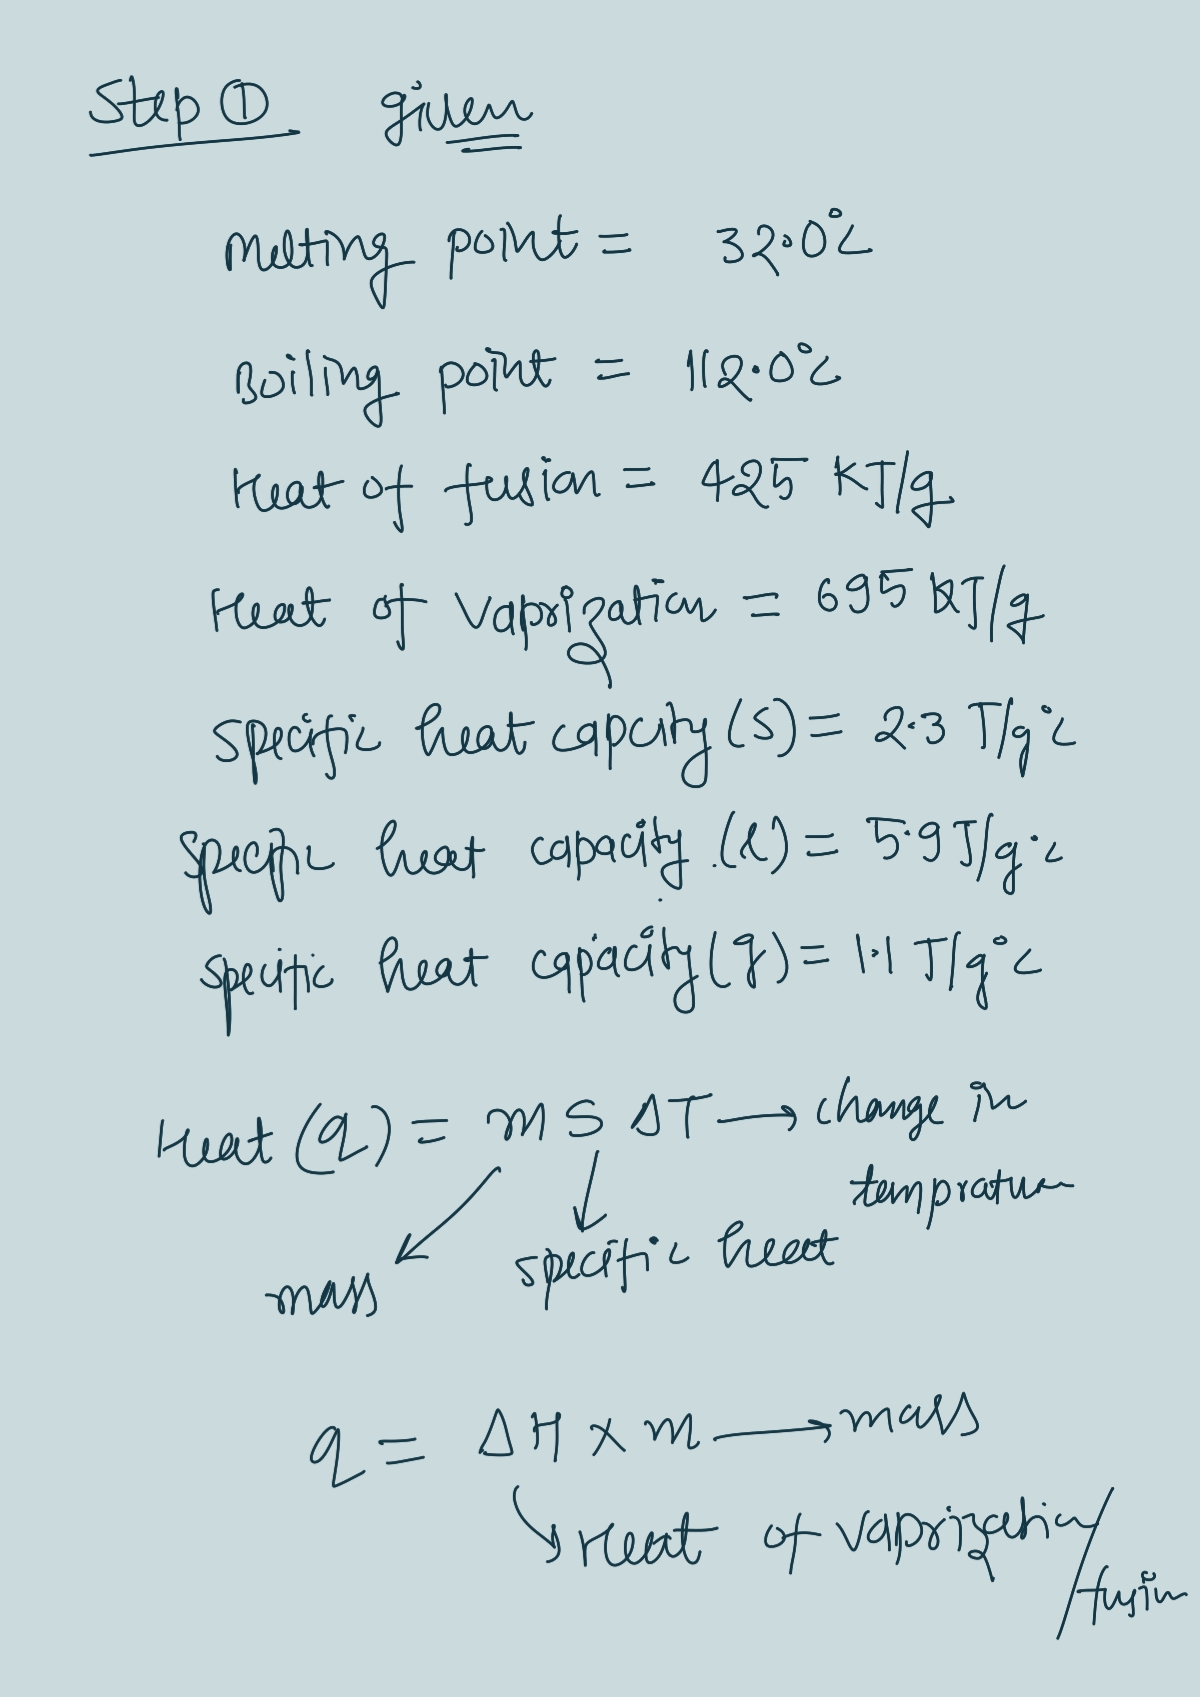 Step ① given
Melting point = 32.0°C
Boiling point = 112.0°C
Heat of fusion = 425 KJ/g
Heat of vaprization = 695 KJ/g
specific heat capcity (s) = 2.3 J/g°C
specific heat capacity (l) = 5.9 J/g°C
specific heat capacity (g) = 1.1 J/g°C
Heat (q) = m S ΔT → change in
tempratur
mass
specific heat
q = ΔH × m → mass
Heat of vaprization/
fusion